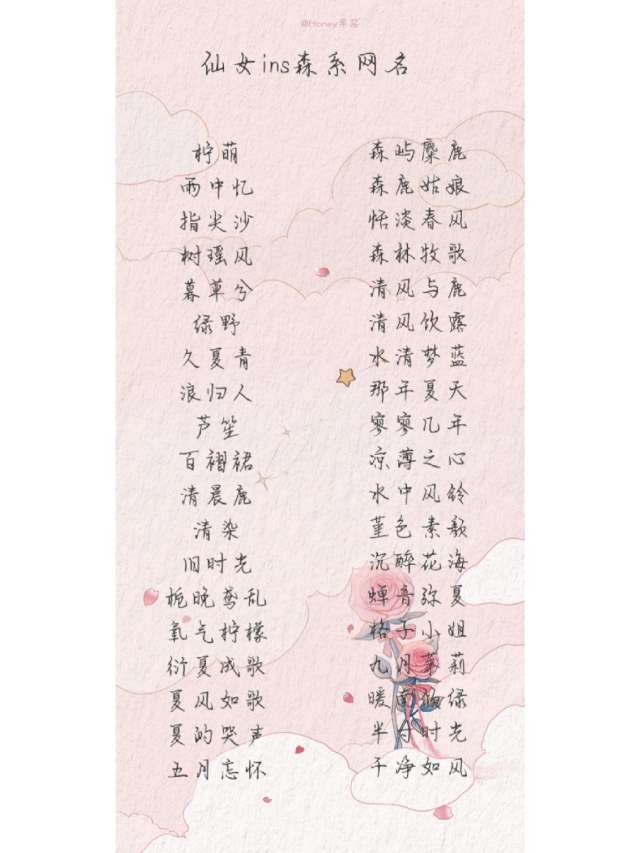 @Honey苯蓝
仙女ins森系网名
柠萌
雨中忆
指尖沙
树瑶风
暮草兮
绿野
久夏青
浪归人
芦笙
百褶裙
清晨鹿
清染
旧时光
栀晚鸢乱
氧气柠檬
衍夏成歌
夏风如歌
夏的哭声
五月忘怀
森屿麋鹿
森鹿姑娘
恬淡春风
森林牧歌
清风与鹿
清风饮露
水清梦蓝
那年夏天
寥寥几年
凉薄之心
水中风铃
堇色素颜
沉醉花海
蝉音弥夏
格子小姐
九月茉莉
暖南倾绿
半寸时光
干净如风